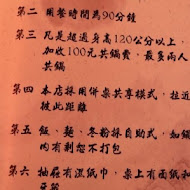 第二 用餐時間為90分鐘
第三 凡是超過身高120公分以上，
加收100元共鍋費，最多兩人
共鍋
第四 本店採用併桌共享模式，拉近
彼此距離
第五 飯、麵、冬粉採自助式，如鍋
內有剩恕不打包
第六 抽屜有濕紙巾，桌上有面紙和